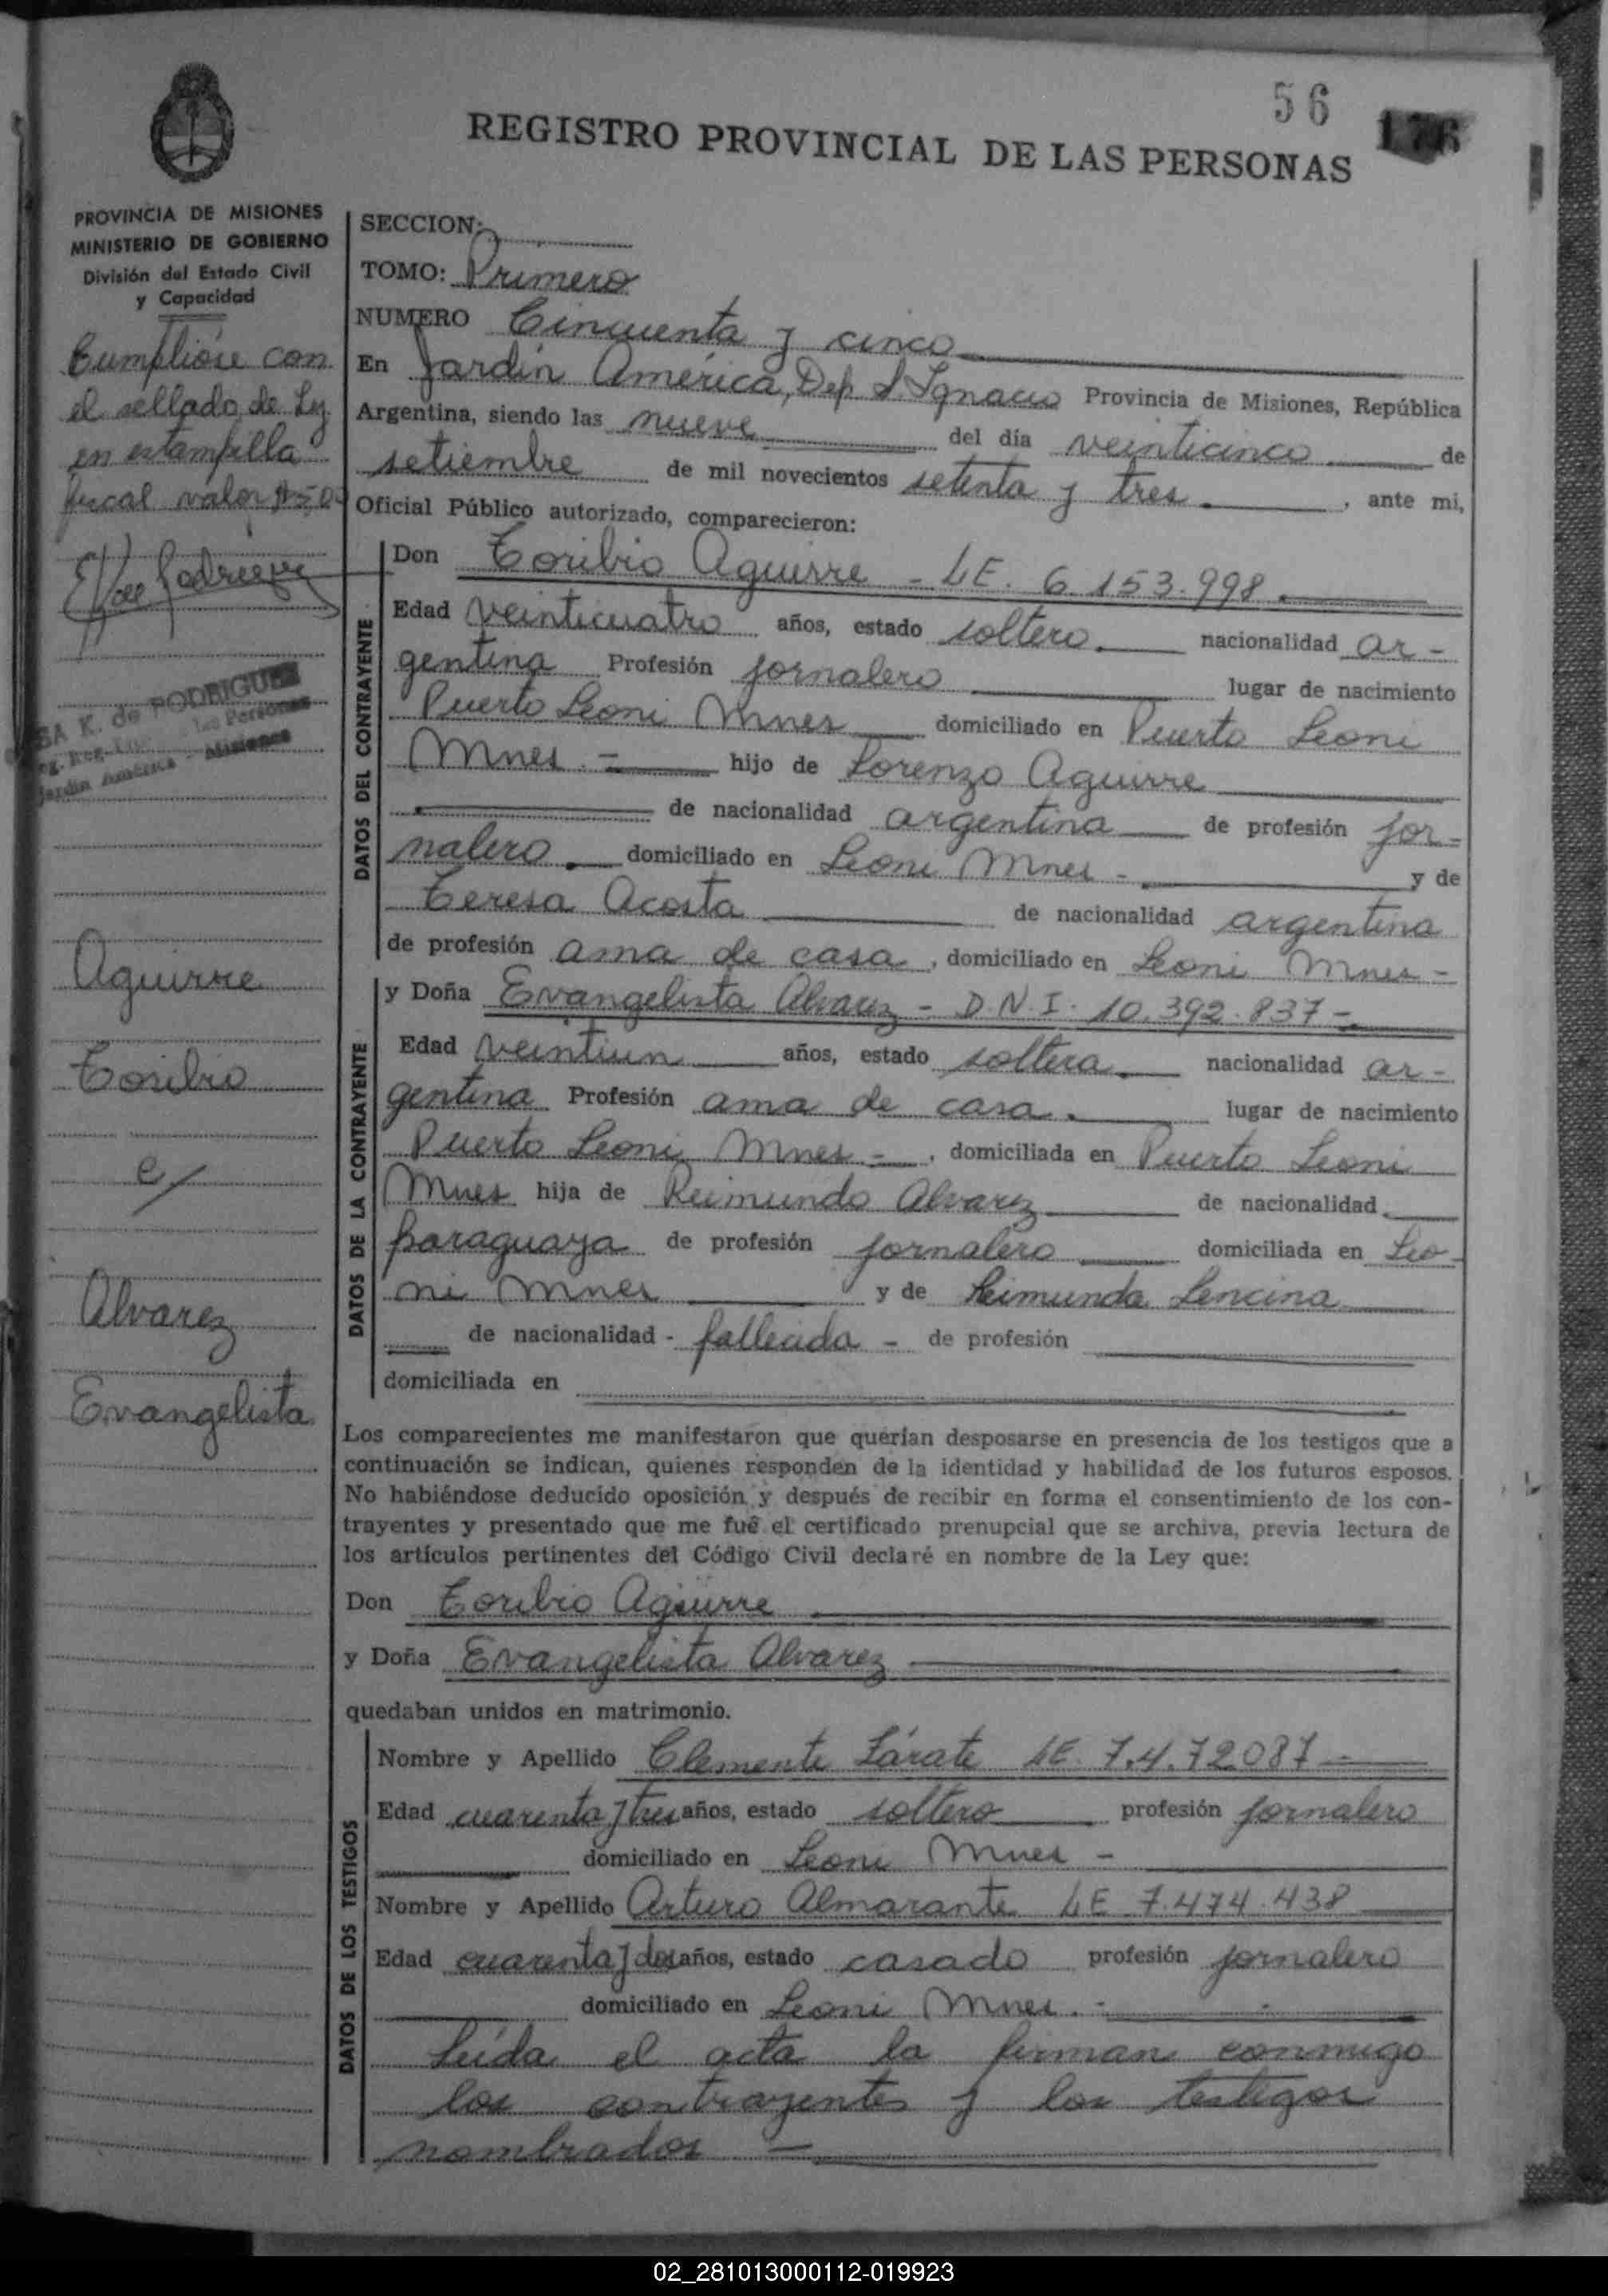 56 176
REGISTRO PROVINCIAL DE LAS PERSONAS
PROVINCIA DE MISIONES
MINISTERIO DE GOBIERNO
División del Estado Civil
y Capacidad
Cumplióse con
el sellado de Ley
en estampilla
fiscal valor
K. de RODRIGUEZ
las Personas
Jardín América - Misiones
Aguirre
Toribio
c/
Alvarez
Evangelista
SECCION:
TOMO: Primero
NUMERO Cincuenta y cinco
En Jardín América, Dep. S. Ignacio Provincia de Misiones, República
Argentina, siendo las nueve del día veinticinco de
setiembre de mil novecientos setenta y tres, ante mi,
Oficial Público autorizado, comparecieron:
DATOS DEL CONTRAYENTE
Don Toribio Aguirre - LE. 6.153.998.
Edad veinticuatro años, estado soltero. nacionalidad ar-
gentina Profesión jornalero lugar de nacimiento
Puerto Leoni Mnes domiciliado en Puerto Leoni
Mnes. - hijo de Lorenzo Aguirre
de nacionalidad argentina de profesión jor-
nalero. domiciliado en Leoni Mnes - y de
Teresa Acosta de nacionalidad argentina
de profesión ama de casa, domiciliado en Leoni Mnes -
DATOS DE LA CONTRAYENTE
y Doña Evangelista Alvarez - D.N.I. 10.392.837 -
Edad veintiun años, estado soltera. nacionalidad ar-
gentina Profesión ama de casa. lugar de nacimiento
Puerto Leoni Mnes - , domiciliada en Puerto Leoni
Mnes hija de Reimundo Alvarez de nacionalidad
paraguaya de profesión jornalero domiciliada en Leo-
ni Mnes y de Reimunda Lencina
de nacionalidad - fallecida - de profesión
domiciliada en
Los comparecientes me manifestaron que querían desposarse en presencia de los testigos que a
continuación se indican, quienes responden de la identidad y habilidad de los futuros esposos.
No habiéndose deducido oposición y después de recibir en forma el consentimiento de los con-
trayentes y presentado que me fué el certificado prenupcial que se archiva, previa lectura de
los artículos pertinentes del Código Civil declaré en nombre de la Ley que:
Don Toribio Aguirre
y Doña Evangelista Alvarez
quedaban unidos en matrimonio.
DATOS DE LOS TESTIGOS
Nombre y Apellido Clemente Zárate LE. 7.4.72087 -
Edad cuarenta y tres años, estado soltero profesión jornalero
domiciliado en Leoni Mnes -
Nombre y Apellido Arturo Almarante LE 7.474.438
Edad cuarenta y dos años, estado casado profesión jornalero
domiciliado en Leoni Mnes. -
Leída el acta la firman conmigo
los contrayentes y los testigos
nombrados -
02_281013000112-019923